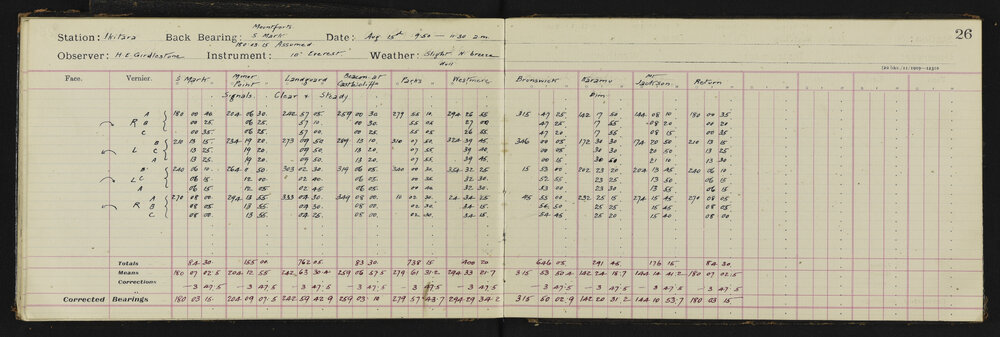 Mountforts
Station: Ikitara Back Bearing: S Mark Date: Aug 15th 9:50 — 11:30 a.m. 26
180 03 15 Assumed
Observer: H.E. Girdlestone Instrument: 10" Everest Weather: Slight N. breeze
dull
Face. Vernier. S Mark Minor Point Landguard Beacon at Castlecliff Parks Westmere Brunswick Karamu Mt Jackson Return
Signals Clear & Steady Dim
R A 180 00 40 204 06 30 242 57 05 259 00 30 279 55 10 294 26 55 315 47 25 142 17 50 144 08 10 180 00 35
B 00 25 06 25 57 10 00 30 55 05 27 00 47 25 17 55 08 20 00 20
C 00 35 06 25 57 00 00 25 55 05 26 55 47 20 17 55 08 15 00 35
L B 210 13 15 234 19 20 273 09 50 289 13 10 310 07 50 324 39 45 346 00 05 172 30 30 174 20 50 210 13 15
C 13 25 19 20 09 50 13 20 07 55 39 45 00 05 30 30 20 50 13 25
A 13 25 19 20 09 50 13 20 07 55 39 45 00 15 30 50 21 10 13 30
L B 240 06 10 264 11 50 303 02 30 319 06 05 340 00 30 354 32 25 15 53 00 202 23 20 204 13 45 240 06 10
C 06 15 12 00 02 40 06 05 00 30 32 30 52 55 23 25 13 50 06 15
A 06 15 12 05 02 45 06 05 00 40 32 30 53 00 23 30 13 55 06 15
R A 270 08 00 294 13 55 333 04 30 349 08 00 10 02 30 24 34 25 45 55 00 232 25 15 234 15 45 270 08 05
B 08 05 13 55 04 30 08 00 02 30 34 15 54 50 25 25 15 45 08 05
C 08 00 13 55 04 25 08 00 02 30 34 15 54 45 25 20 15 40 08 00
Totals 84 30 155 00 762 05 83 30 738 15 400 20 646 05 291 45 176 15 84 30
Means 180 07 02.5 204 12 55 242 63 30.4 259 06 57.5 279 61 31.2 294 33 21.7 315 53 50.4 142 24 18.7 144 14 41.2 180 07 02.5
Corrections — 3 47.5 — 3 47.5 — 3 47.5 — 3 47.5 — 3 47.5 — 3 47.5 — 3 47.5 — 3 47.5 — 3 47.5 — 3 47.5
Corrected Bearings 180 03 15 204 09 07.5 242 59 42.9 259 03 10 279 57 43.7 294 29 34.2 315 50 02.9 142 20 31.2 144 10 53.7 180 03 15